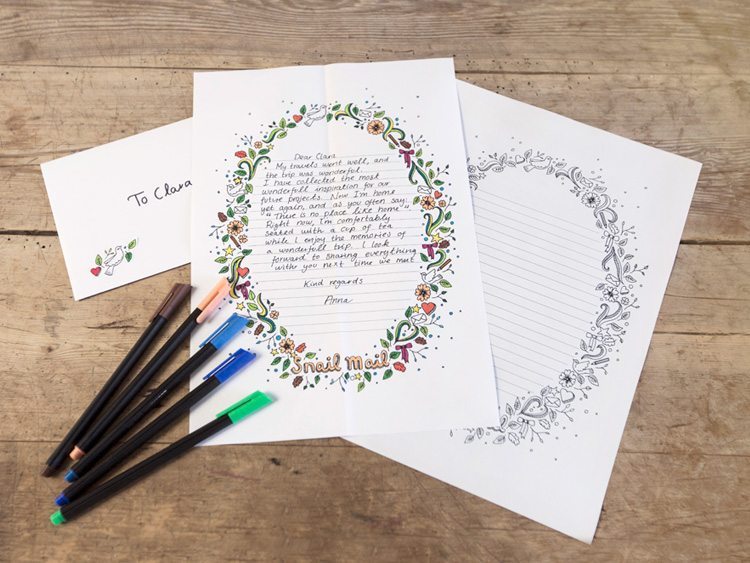 To Clara
Dear Clara
My travels went well, and
the trip was wonderful.
I have collected the most
wonderfull inspiration for our
future projects. Now I'm home
yet again, and as you often say:
"There is no place like home"
Right now, I'm comfortably
seated with a cup of tea
while I enjoy the memories of
a wonderfull trip. I look
forward to sharing everything
with you next time we met
Kind regards
Anna
Snail Mail